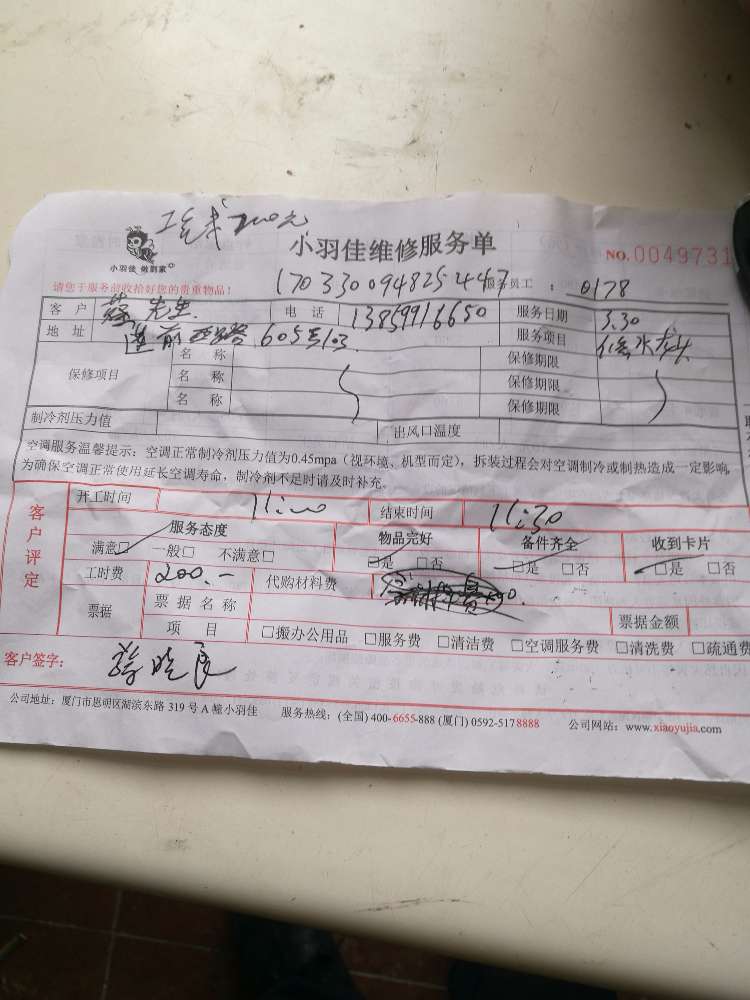 工钱200元
小羽佳 做到家
小羽佳维修服务单
NO.0049731
请您于服务前收拾好您的贵重物品!
170330094825447
服务员工 : 0178
客户 蔡先生 电话 13859916650 服务日期 3.30
地址 莲前西路605号103 服务项目 修水龙头
保修项目 名称 保修期限
名称 保修期限
名称 保修期限
制冷剂压力值 出风口温度
空调服务温馨提示:空调正常制冷剂压力值为0.45mpa(视环境、机型而定),拆装过程会对空调制冷或制热造成一定影响,
为确保空调正常使用延长空调寿命,制冷剂不足时请及时补充。
客户评定
开工时间 11:00 结束时间 11:30
服务态度 物品完好 备件齐全 收到卡片
满意□ 一般□ 不满意□ □是 □否 □是 □否 □是 □否
工时费 200.- 代购材料费
票据 票据名称 票据金额
项目 □搬办公用品 □服务费 □清洁费 □空调服务费 □清洗费 □疏通费
客户签字: 蔡晓
公司地址:厦门市思明区湖滨东路 319 号 A 幢小羽佳 服务热线:(全国) 400-6655-888 (厦门) 0592-5178888 公司网站:www.xiaoyujia.com